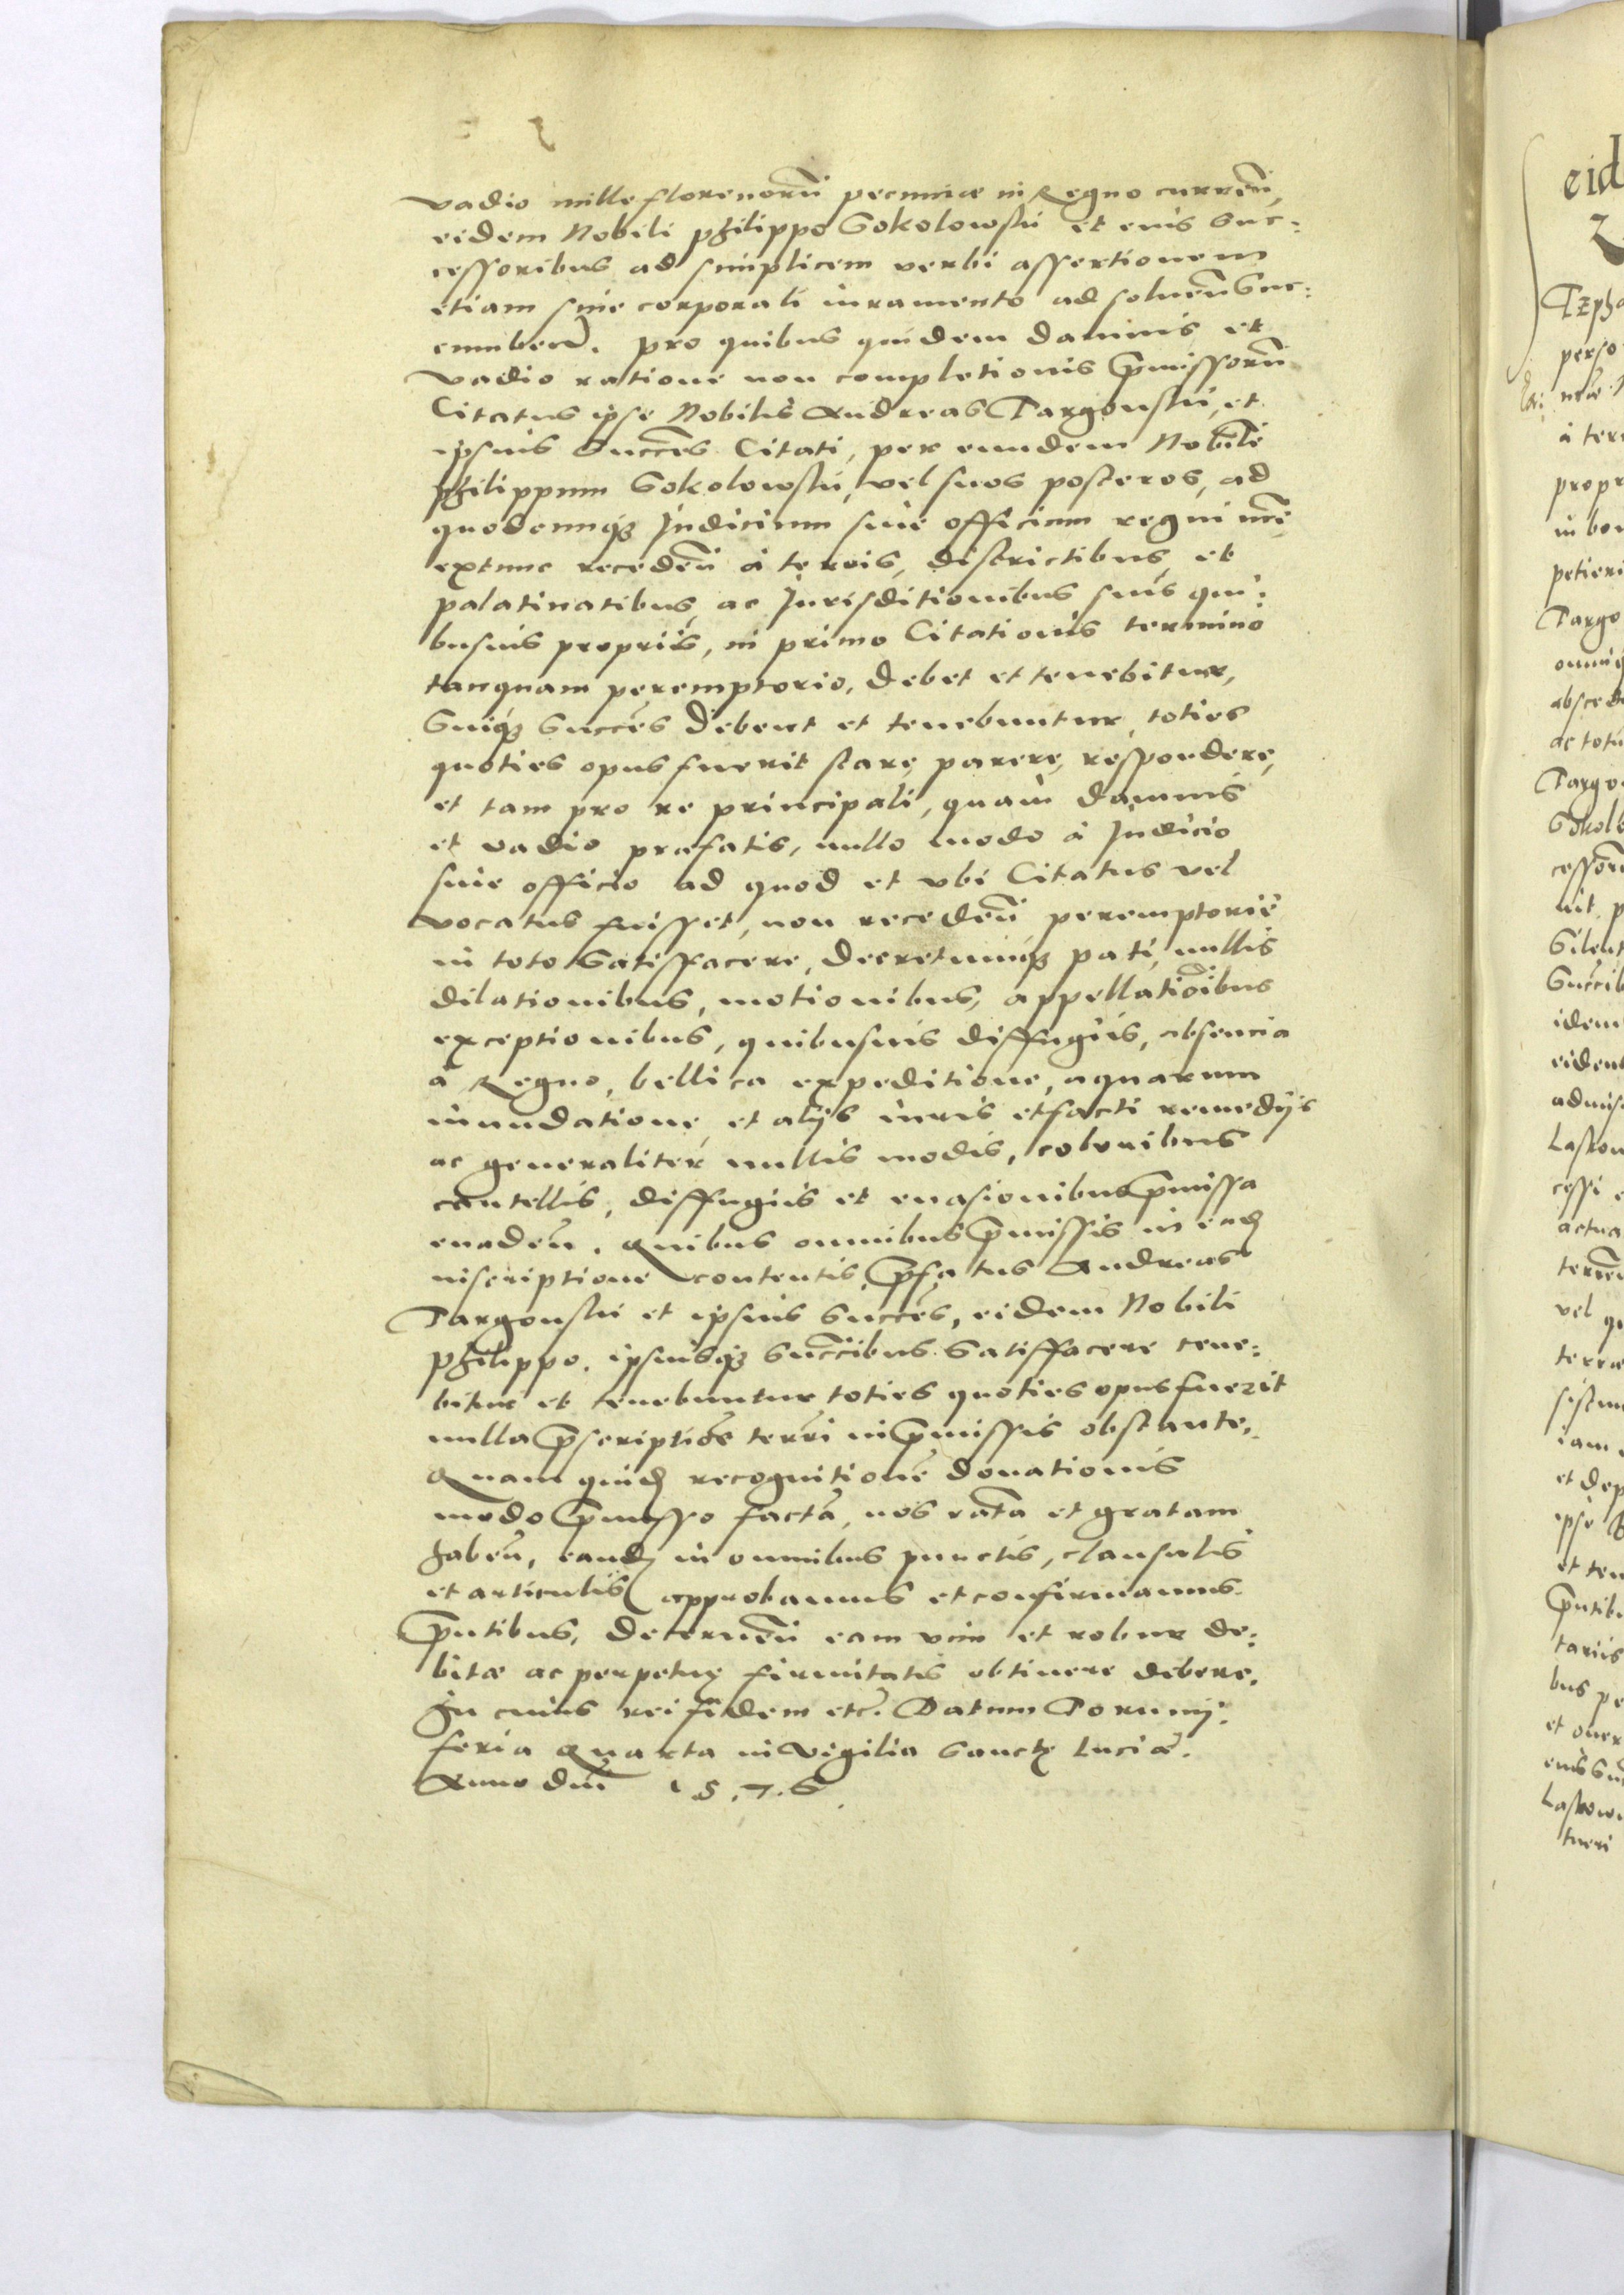 vadio mille florenorũ pecuniæ in Regno currẽñ,
eidem Nobili Philippo Sokolowski et eius Suc:
cessoribus ad simplicem verbi assertionem
etiam sine corporali iuramento ad soluẽñ Suc:
cumbeñ. pro quibus quidem damnis et
vadio ratione non completionis p̃missorũ
Citatus ipse Nobilis Andreas Targonski, et
ipsius Succẽs Citati, per eundem Nobilẽ
Philippum Sokolowski, vel suos posteros, ad
quodcumq3 Judicium siue officium regni nr̃i
extunc recedẽñ à terris, districtibus, et
palatinatibus, ac Jurisditionibus suis qui:
busuis proprijs, in primo Citationis termino
tanquam peremptorio, debet et tenebitur,
Suiq3 Succẽs debent et tenebuntur, toties
quoties opus fuerit stare, parere, respondere,
et tam pro re principali, quàm damnis
et vadio præfatis, nullo modo à Judicio
siue officio ad quod et vbi Citatus vel
vocatus fuisset, non recedẽñ peremptoriè
in toto Satisfacere, decretumq3 pati, nullis
dilationibus, motionibus, appellatiõibus
exceptionibus, quibusuis diffugijs, absencia
à Regno, bellica expeditione, aquarum
inundatione, et alijs iuris et facti remedijs
ac generaliter nullis modis, coloribus
cautellis, diffugijs et euasionibus p̃missa
euadeñ. Quibus omnibus p̃missis in eadẽ
inscriptione contentis p̃fatus Andreas
Targonski et ipsius Succẽs, eidem Nobili
Philippo, ipsiusq3 Succ̃ibus Satisfacere tene:
bitur et tenebuntur toties quoties opus fuerit
nulla p̃scriptiõe terrĩ in p̃missis obstante.
Quam quidẽ recognitionẽ donationis
modo p̃misso factã, nos ratã et gratam
habeñ, eandẽ in omnibus punctis, clausulis
et articulis approbamus et confirmamus
p̃ntibus, decernẽñ eam vim et robur de:
bitæ ac perpetuę firmitatis obtinere debere.
In cuius rei fidem etc. Datum Torunij
feria Quarta in vigilia Sanctę Luciæ.
Anno dñi 1576